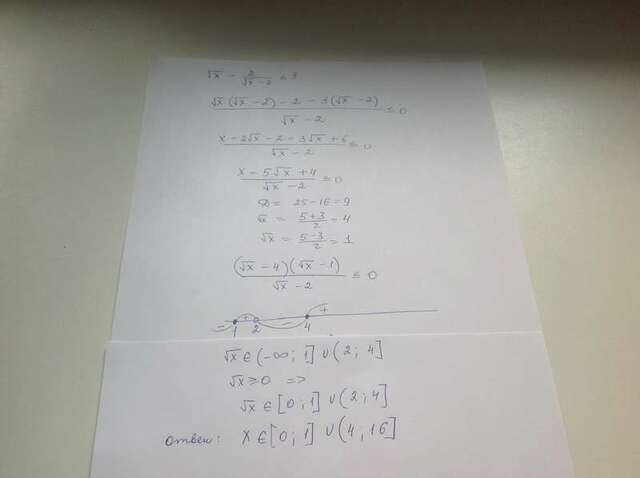 √x - 2/(√x-2) ≤ 3
(√x(√x-2)-2-3(√x-2))/(√x-2) ≤ 0
(x-2√x-2-3√x+6)/(√x-2) ≤ 0
(x-5√x+4)/(√x-2) ≤ 0
D = 25-16=9
√x = (5+3)/2 = 4
√x = (5-3)/2 = 1
((√x-4)(√x-1))/(√x-2) ≤ 0
- + - +
1 2 4
√x ∈ (-∞; 1] ∪ (2; 4]
√x ≥ 0 =>
√x ∈ [0; 1] ∪ (2; 4]
Ответ: x ∈ [0; 1] ∪ (4; 16]